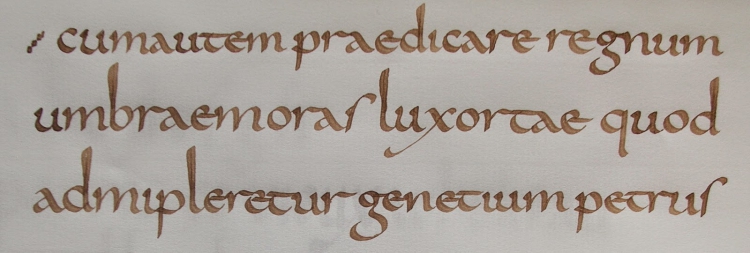 cumautem praedicare regnum
umbraemoras luxortae quod
admipleretur genetiuim petrus